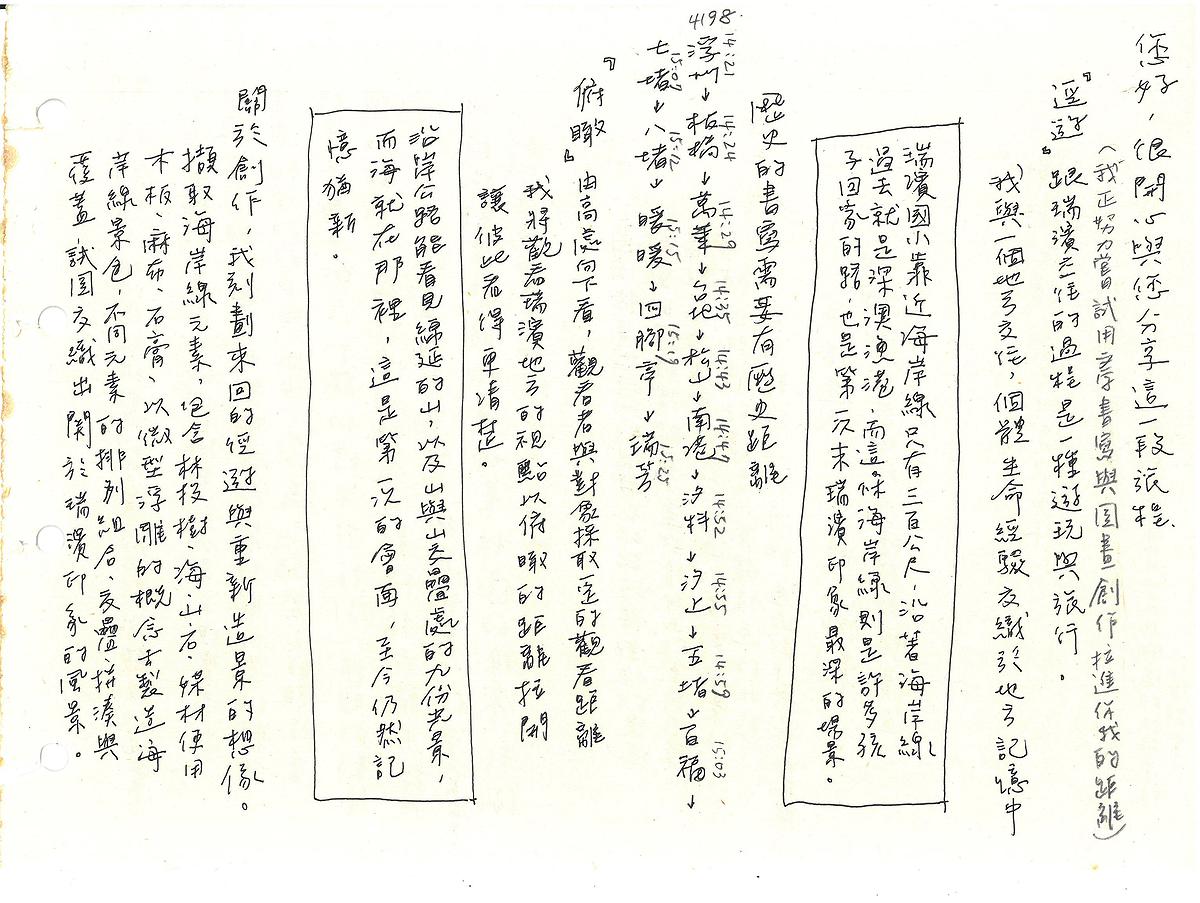 您好，很開心與您分享這一段旅程
（我正努力嘗試用文字書寫與圖畫創作拉進你我的距離）
『逕遊』跟瑞濱之往的過程是一種遊玩與旅行。
我與一個地方交往，個體生命經驗交織於地方記憶中
瑞濱國小靠近海岸線只有三百公尺，沿著海岸線
過去就是深澳漁港，而這條海岸線則是許多孩
子回家的路，也是第一次來瑞濱印象最深的場景。
歷史的書寫需要有歷史距離
4198
14:21 14:24 14:29 14:35 14:43 14:49 14:52 14:55 14:59 15:03
浮洲→板橋→萬華→台北→松山→南港→汐科→汐止→五堵→百福→
15:09 15:12 15:15 15:19 15:25
七堵→八堵→暖暖→四腳亭→瑞芳
『俯瞰』由高處向下看，觀看者與對象採取遠的觀看距離
我將觀看瑞濱地方的視點以俯瞰的距離拉開
讓彼此看得更清楚。
沿岸公路能看見綿延的山，以及山與山交疊處的九份老景，
而海就在那裡，這是第一次的會面，至今仍然記
憶猶新。
關於創作，我刻劃來回的徑遊與重新造景的想像。
擷取海岸線元素，包含林投樹、海、山、石，媒材使用
木板、麻布、石膏，以微型浮雕的概念去製造海
岸線景色，不同元素的排列組合、交疊、拼湊與
覆蓋，試圖交織出關於瑞濱印象的風景。